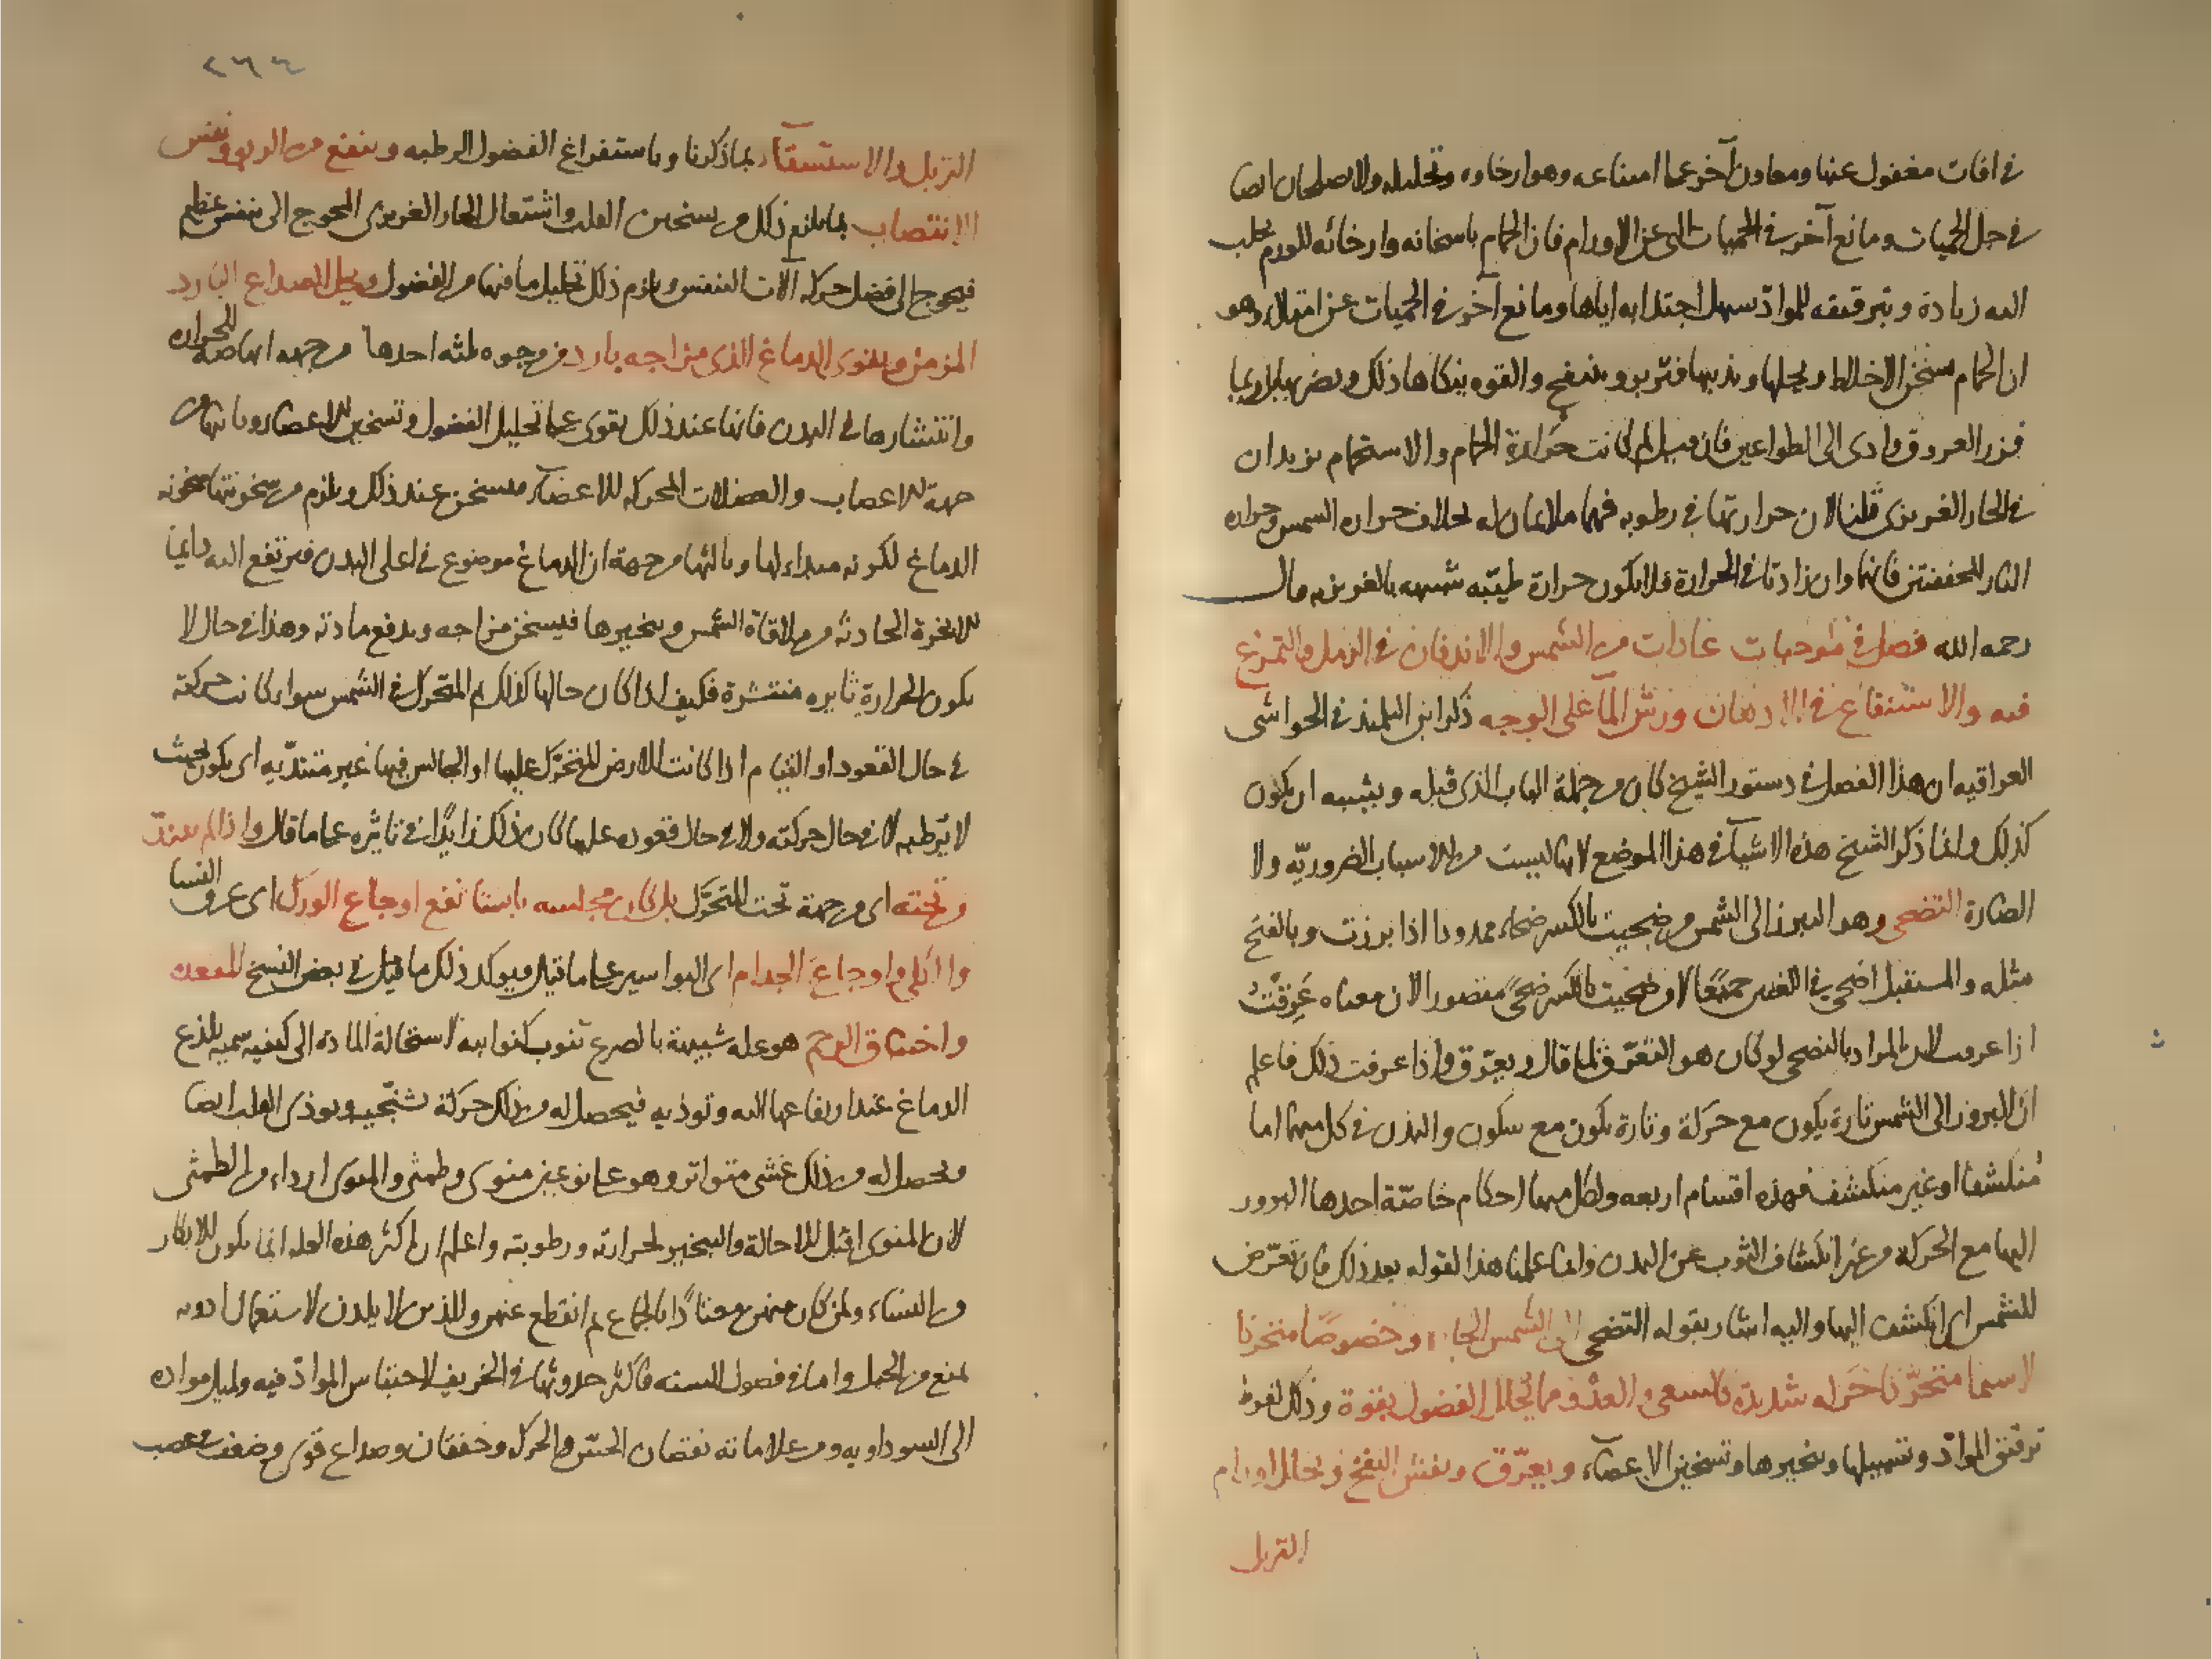 في افات مغفول عنها ومعاون آخر على امتناعه وهو ارخاوه وتحليله والاصطلحان ايضا
في جل الحميات ومانع آخر في الحميات التى عن الاورام فان الحمام باسخانه وارخائه للورم يجلب
اليه زيادة وبترقيقه للمواد سهل اجتذابه اياها ومانع آخر في الحميات عن امتلاء وهو
ان الحمام يسخن الاخلاط ويحلها ويذيبها فتربو وتنتفخ والقوه ينكاها ذلك ويضر بها بل ربما
فزر العروق وادى الى الطواعين فان قيل لم كانت حرارة الحمام والاستحمام يزيدان
في الحار الغريزى قلنا لان حرارتها في رطوبه فهما ملايمان له بخلاف حراره الشمس وحراره
النار المجففتين فانهما وان زادتا في الحرارة فلا يكون حرارة طيّبه شبيهه بالغريزيه قال
رحمه الله فصل في موجبات عادات من الشمس والاندفان في الرمل والتمرغ
فيه والاستنقاع في الادهان ورش الماء على الوجه ذكر ابن التلميذ في الحواشى
العراقيه ان هذا الفصل في دستور الشيخ كان من جملة الباب الذى قبله ويشبه ان يكون
كذلك وانما ذكر الشيخ هذه الاشياء في هذا الموضع لانها ليست من الاسباب الضروريّه ولا
الضارة التضحى وهو البروز الى الشمس من ضحيت بالكسر ضحاء ممدودا اذا برزت وبالفتح
مثله والمستقبل اضحى في اللغتين جميعًا لا من ضحيت بالكسر ضحىً مقصورا لان معناه عَرِقْتُ
اذا عرفت لان المراد بالتضحى لو كان هو التعرّق لما قال ويعرّق واذا عرفت ذلك فاعلم
ان البروز الى الشمس تارة يكون مع حركة وتارة يكون مع سكون والبدن في كل منهما اما
مُنكشفا او غير منكشف فهذه اقسام اربعه ولكل منها احكام خاصّة احدها البروز
اليها مع الحركة من غير انكشاف الثوب عن البدن وانما علمنا هذا لقوله بعد ذلك فان تعرّض
للشمس اى انكشف اليها واليه اشار بقوله التضحى الى الشمس الحارة وخصوصًا متحركا
لا سيما متحرّكا حركة شديدة كالسعى والعدْو مما يحلل الفضول بقوة وذلك لفرط
ترقيق المواد وتسييلها وتبخيرها وتسخين الاعضاء ويعرّق وينفش النفخ ويحلل اورام
الترهل
٢٦٤
الترهل والاستسقاء بما ذكرنا وباستفراغ الفضول الرطبه وينفع من الربو ونفس
الانتصاب بما يلزم ذلك من سخين القلب واشتعال الحار الغريزى المحوج الى تنفس عظيم
فيحوج الى فضل حركة آلات التنفس ويلزم ذلك تحليل ما فيها من الفضول ويحل الصداع البارد
المزمن ويقوى الدماغ الذى مزاجه بارد من وجوه ثلثه احدها من جهة انهاضه للحراره
وانتشارها في البدن فانها عند ذلك يقوى على تحليل الفضول وتسخين الاعضاء وثانيها من
جهة الاعصاب والعضلات المحركه للاعضاء فيسخن عند ذلك ويلزم من سخونتها سخونه
الدماغ لكونه مبداء لها وثالثها من جهة ان الدماغ موضوع في اعلى البدن فيرتفع اليه دايما
الابخرة الحادثه من ملاقاة الشمس وتبخيرها فيسخن مزاجه ويدفع مادته وهذا في حال لا
يكون الحرارة ثايره منتشرة فكيف اذا كان حالها كذلك ثم المتحرك في الشمس سواء كانت حركته
في حال القعود او القيام اذا كانت الارض المتحرّك عليها او الجالس فيها غير متندّيه اى يكون بحيث
لا يرطبه لا في حال حركته ولا في حال قعوده عليها كان ذلك زايدًا في تاثيره على ما قال واذا لم يتندّ
وتحته اى من جهة تحت المتحرّك بل كان مجلسه يابسا نفع اوجاع الورك اى عرق النسا
والكلى واوجاع الجذام اى البواسير على ما قيل ويوكد ذلك ما قيل في بعض النسخ المقعده
واختناق الرحم هو علة شبيهة بالصرع تنوب كنوايبه لاستحالة الماده الى كيفيه سميه يلذع
الدماغ عند ارتفاعها اليه وتوذيه فيحصل له من ذلك حركة تشنجيه ويوذى القلب ايضا
ويحصل له من ذلك غشى متواتر وهو على نوعين منوى وطمثى والمنوى ارداء من الطمثى
لان المنوى اقبل للاحالة والتبخير لحرارته ورطوبته واعلم ان اكثر هذه العله انما يكون للابكار
من النساء ولمن كان منهن معتادًا بالجماع ثم انقطع عنهن وللذين لا يلدن لاستعمال ادويه
تمنع من الحبل واما في فصول السنه فاكثر حدوثها في الخريف لاحتباس المواد فيه ولميل مواده
الى السوداويه ومن علاماته نقصان الحسّ والحركة وخفقان وصداع قوى وضعف